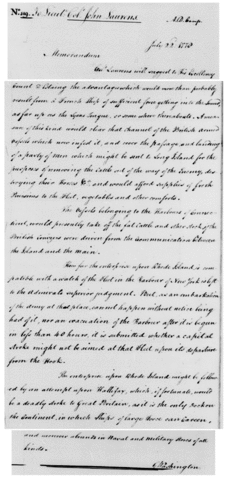 To Lieut. Col. John Laurens
July 22d 1778
Memorandum
Col. Laurens will suggest to His Excellency
Count D'Estaing the advantages which would more than probably
result from a French Ship of sufficient force getting into the Sound,
as far up as the City Island, or even where
of this kind would clear that channel of the British armed
Vessels which now infest it, and cover the passage and landing
of a party of men which might be sent to Long Island for the
purposes of removing the Cattle out of the way of the Enemy, des
troying their Horses &c and would afford supplies of fresh
Provisions to the Fleet, vegetables and other comforts.
The Vessels belonging to the Harbours of Connec-
ticut, would presently take off the fat Cattle and other stock of the
British Conveyers were devoid from the communication between
the Island and the main.
How far the enterprize upon Rhode Island is com
patible with a watch of the Fleet in the Harbour of New York is left
to the Admirals superior judgment. But, as an embarkation
of the army at that place, cannot happen without notice being
had of it, nor an evacuation of the Harbour after it is begun
in less than 48 hours, it is submitted whether a capital
stroke might not be aimed at that Fleet upon its departure
from the Hook.
The enterprize upon Rhode Island might be follow
ed by an attempt upon Hallifax, which, if fortunate, would
be a deadly stroke to Great Britain, as it is the only Dock on
the Continent, in which Ships of large force can Careen
and moreover abounds in Naval and Military stores of all
kinds.
Washington